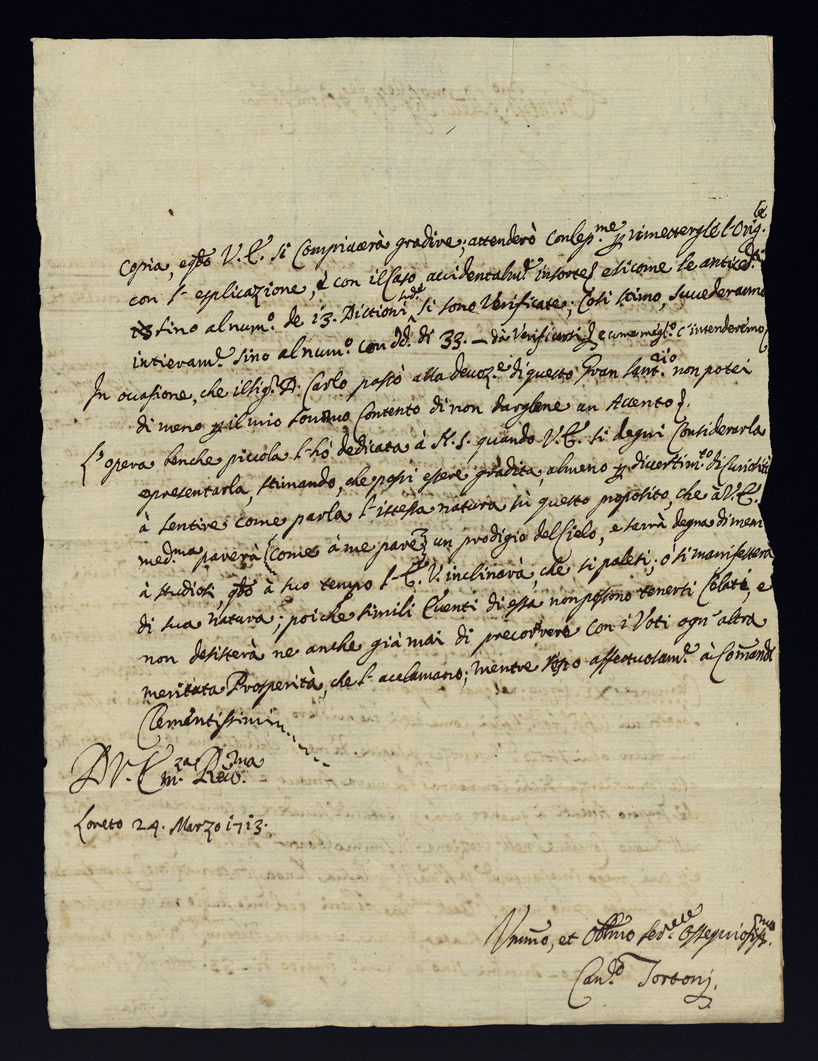 la
copia, e qto V. E. si compiacerà gradire; attenderò
con l'esplicazione, è con il Caso accidentalmte insorto e sicome le anticed.ti
13 sino al num.o de 13. Dictioni si sono Verificate, Così stimo, succederanno
intieram.te sino al num.o con dd. di 33. – dà Verificarsi e come megl.o c'intenderemo
In occasione, che il Sig.r D. Carlo passò alla devoz.e di questo Gran Sant.rio non potei
di meno p il mio sommo Contento di non darglene un Accento.
L'opera benche piccola l'hò dedicata à N. S. quando V. E. si degni Considerarla
e presentarla, stimando, che possi essere gradita, almeno p divertim.to di curiosità
à sentire come parla l'istessa natura sù questo proposito, che à V. E.
med.ma parerà (come à me pare) un prodigio del Cielo, e sarrà degna di mem
à studiosi, qto à suo tempo l'E. V. inclinarà, che si palesi; ò si manifesterà
di sua Natura; poiche simili Eventi di essa non possono tenersi Celati, e
non desisterà ne anche già mai di precorrere con i Voti ogn'altra
meritata Prosperità, che l'acclamano; mentre affettuosam.te à i Comandi
Clementissimi
D V. E.za R.ma Rev.ma
Loreto 24. Marzo 1713.
Ummo, et Obmo Ser.re Ossequiosis.mo
Can.co Tortonj.